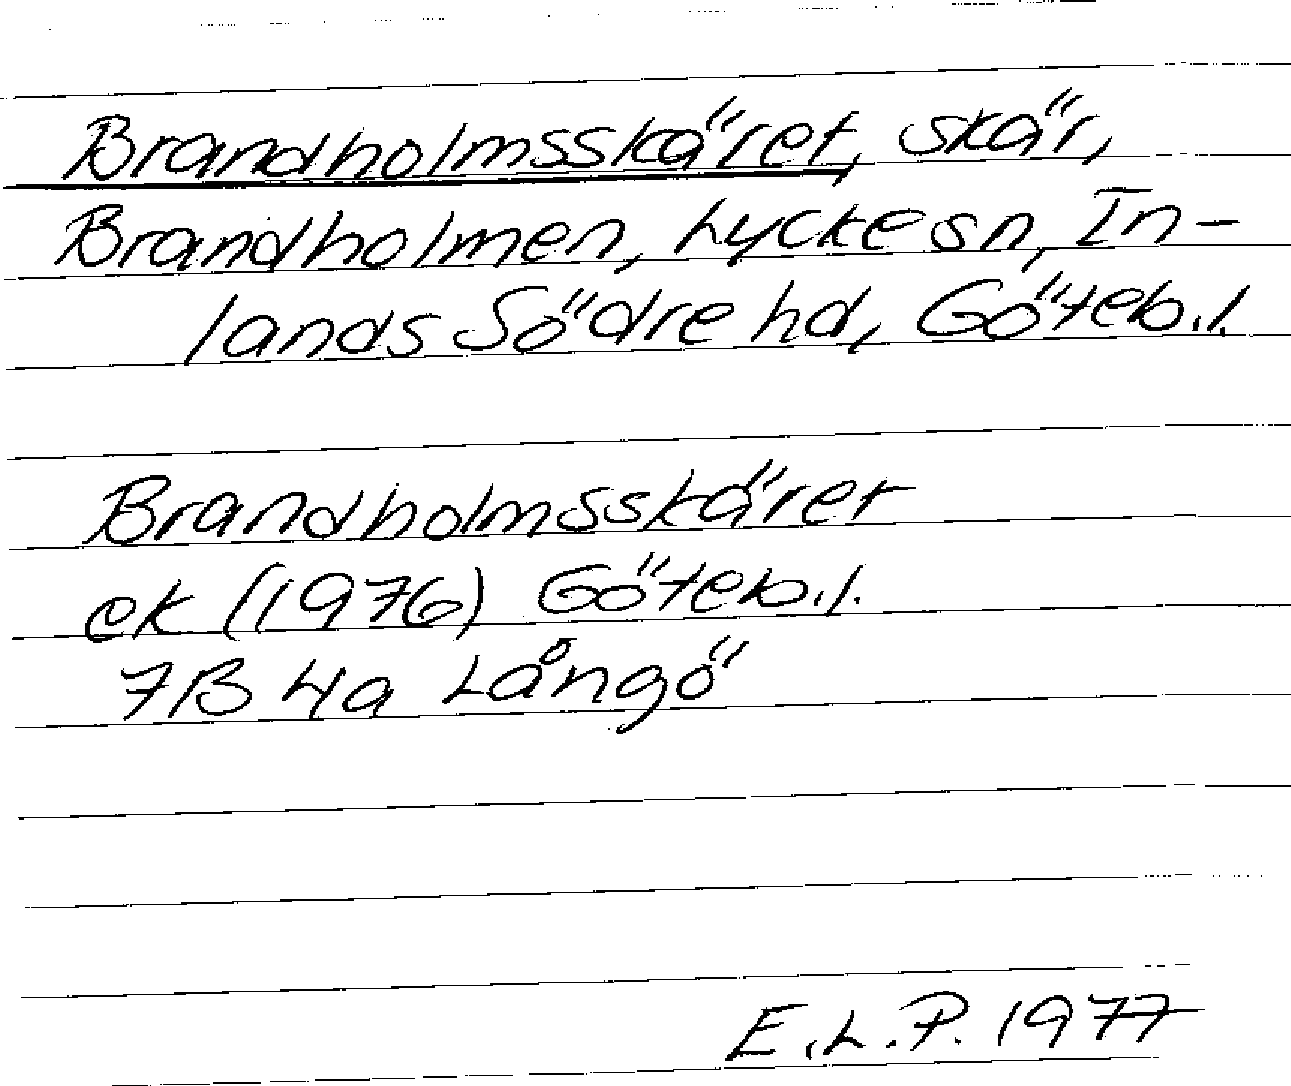 Brandholmsskäret, skär,
Brandholmen, Lycke sn, In-
lands Södre hd, Göteb.l.
Brandholmsskäret
ek (1976) Göteb.l.
7B 4a Långö
E.L.P. 1977